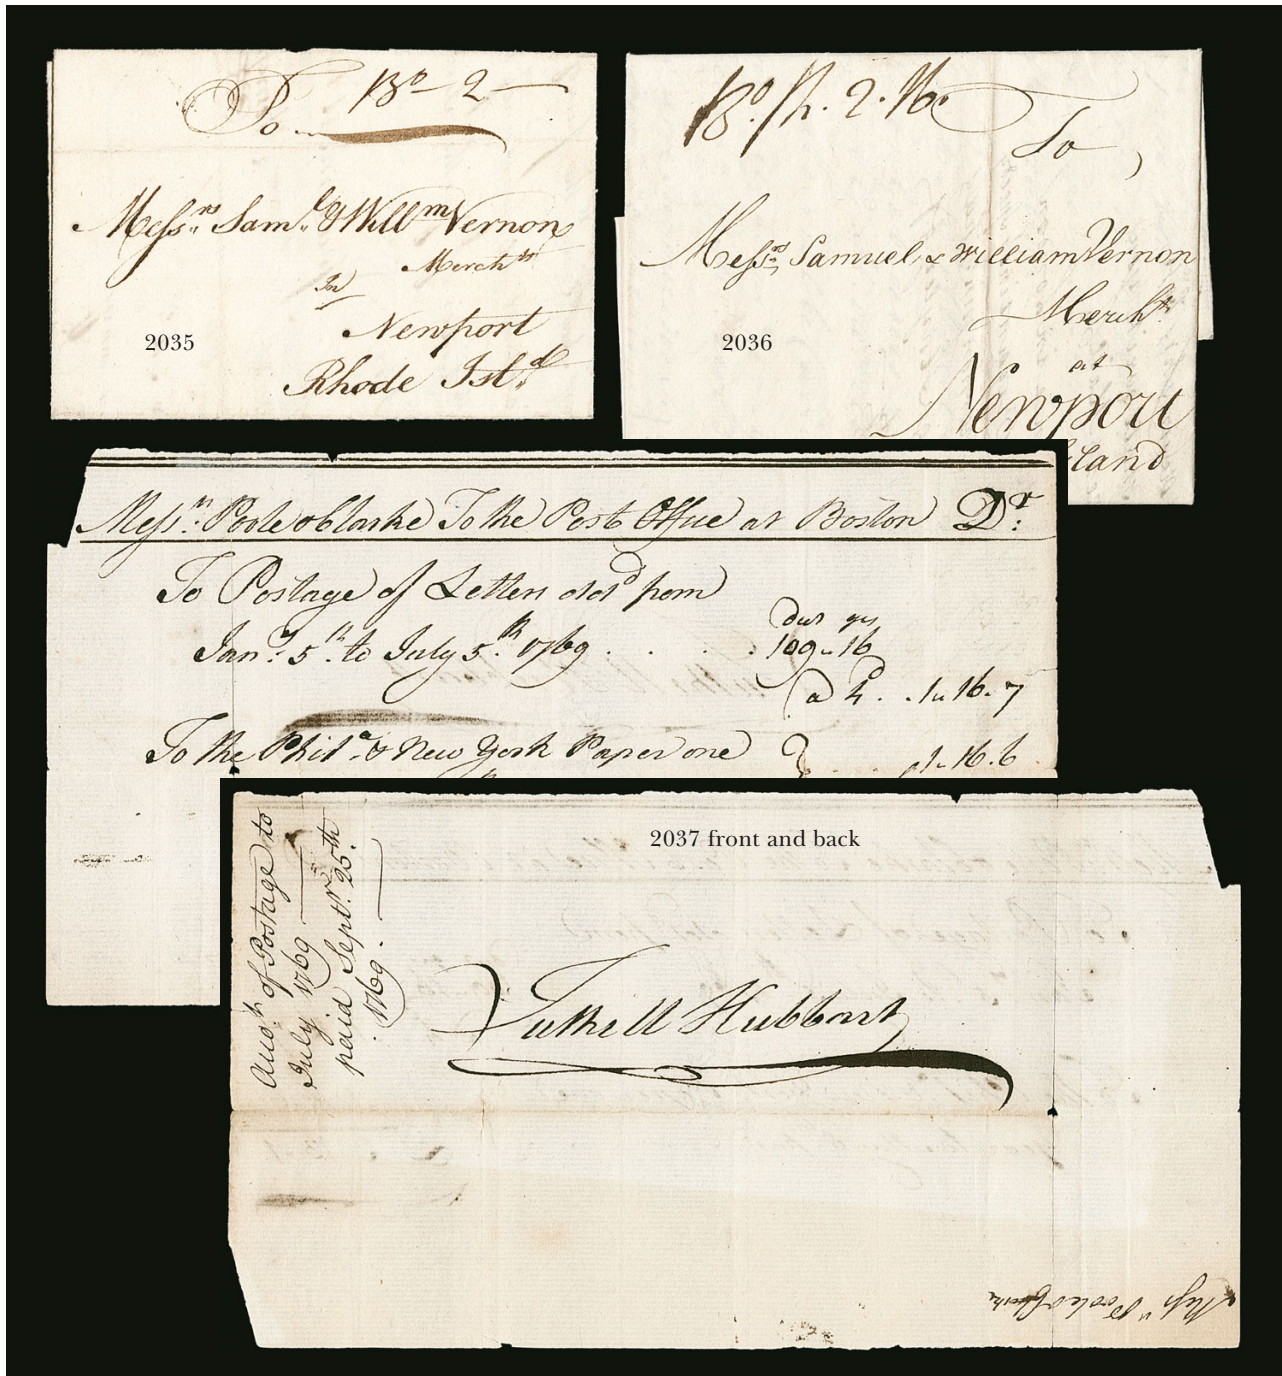 To
Bo 2
Messrs. Saml. & Willm Vernon
Merchts
In
Newport
Rhode Isld.
2035
Bo. Sh. 2. 16
To
Messrs. Samuel & William Vernon
Mercht
at
Newport
Island
2036
Messrs. Poole & Clarke To the Post Office at Boston Dr.
To Postage of Letters deld from
dwt grs
Jany. 5th. to July 5th. 1769 . . . . 109 " 16
. . 1 " 16 . 7
To the Phila. & New York Paper one
1 " 16 . 6
2037 front and back
Acct. of Postage to
July 1769
paid Septr. 25th
1769.
Tuthill Hubbart
Messrs Poole & Clarke